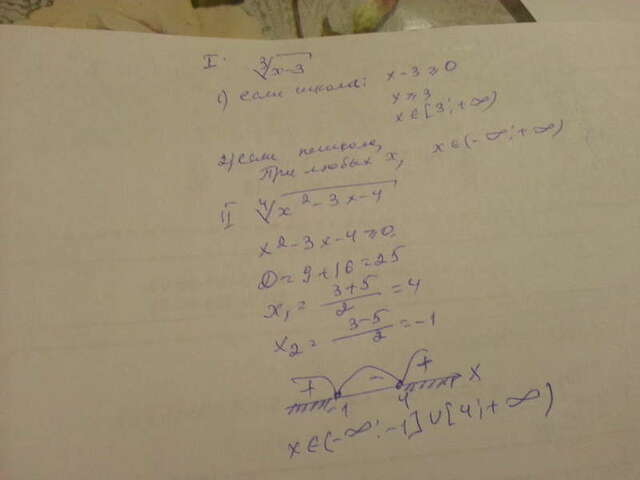 I. ∛(x-3)
1) если школа: x-3≥0
x≥3
x∈[3;+∞)
2) если не школа,
При любых x, x∈(-∞;+∞)
II ∜(x²-3x-4)
x²-3x-4≥0
D=9+16=25
x₁= (3+5)/2 =4
x₂= (3-5)/2 =-1
+ - +
-1 4 x
x∈(-∞;-1]∪[4;+∞)